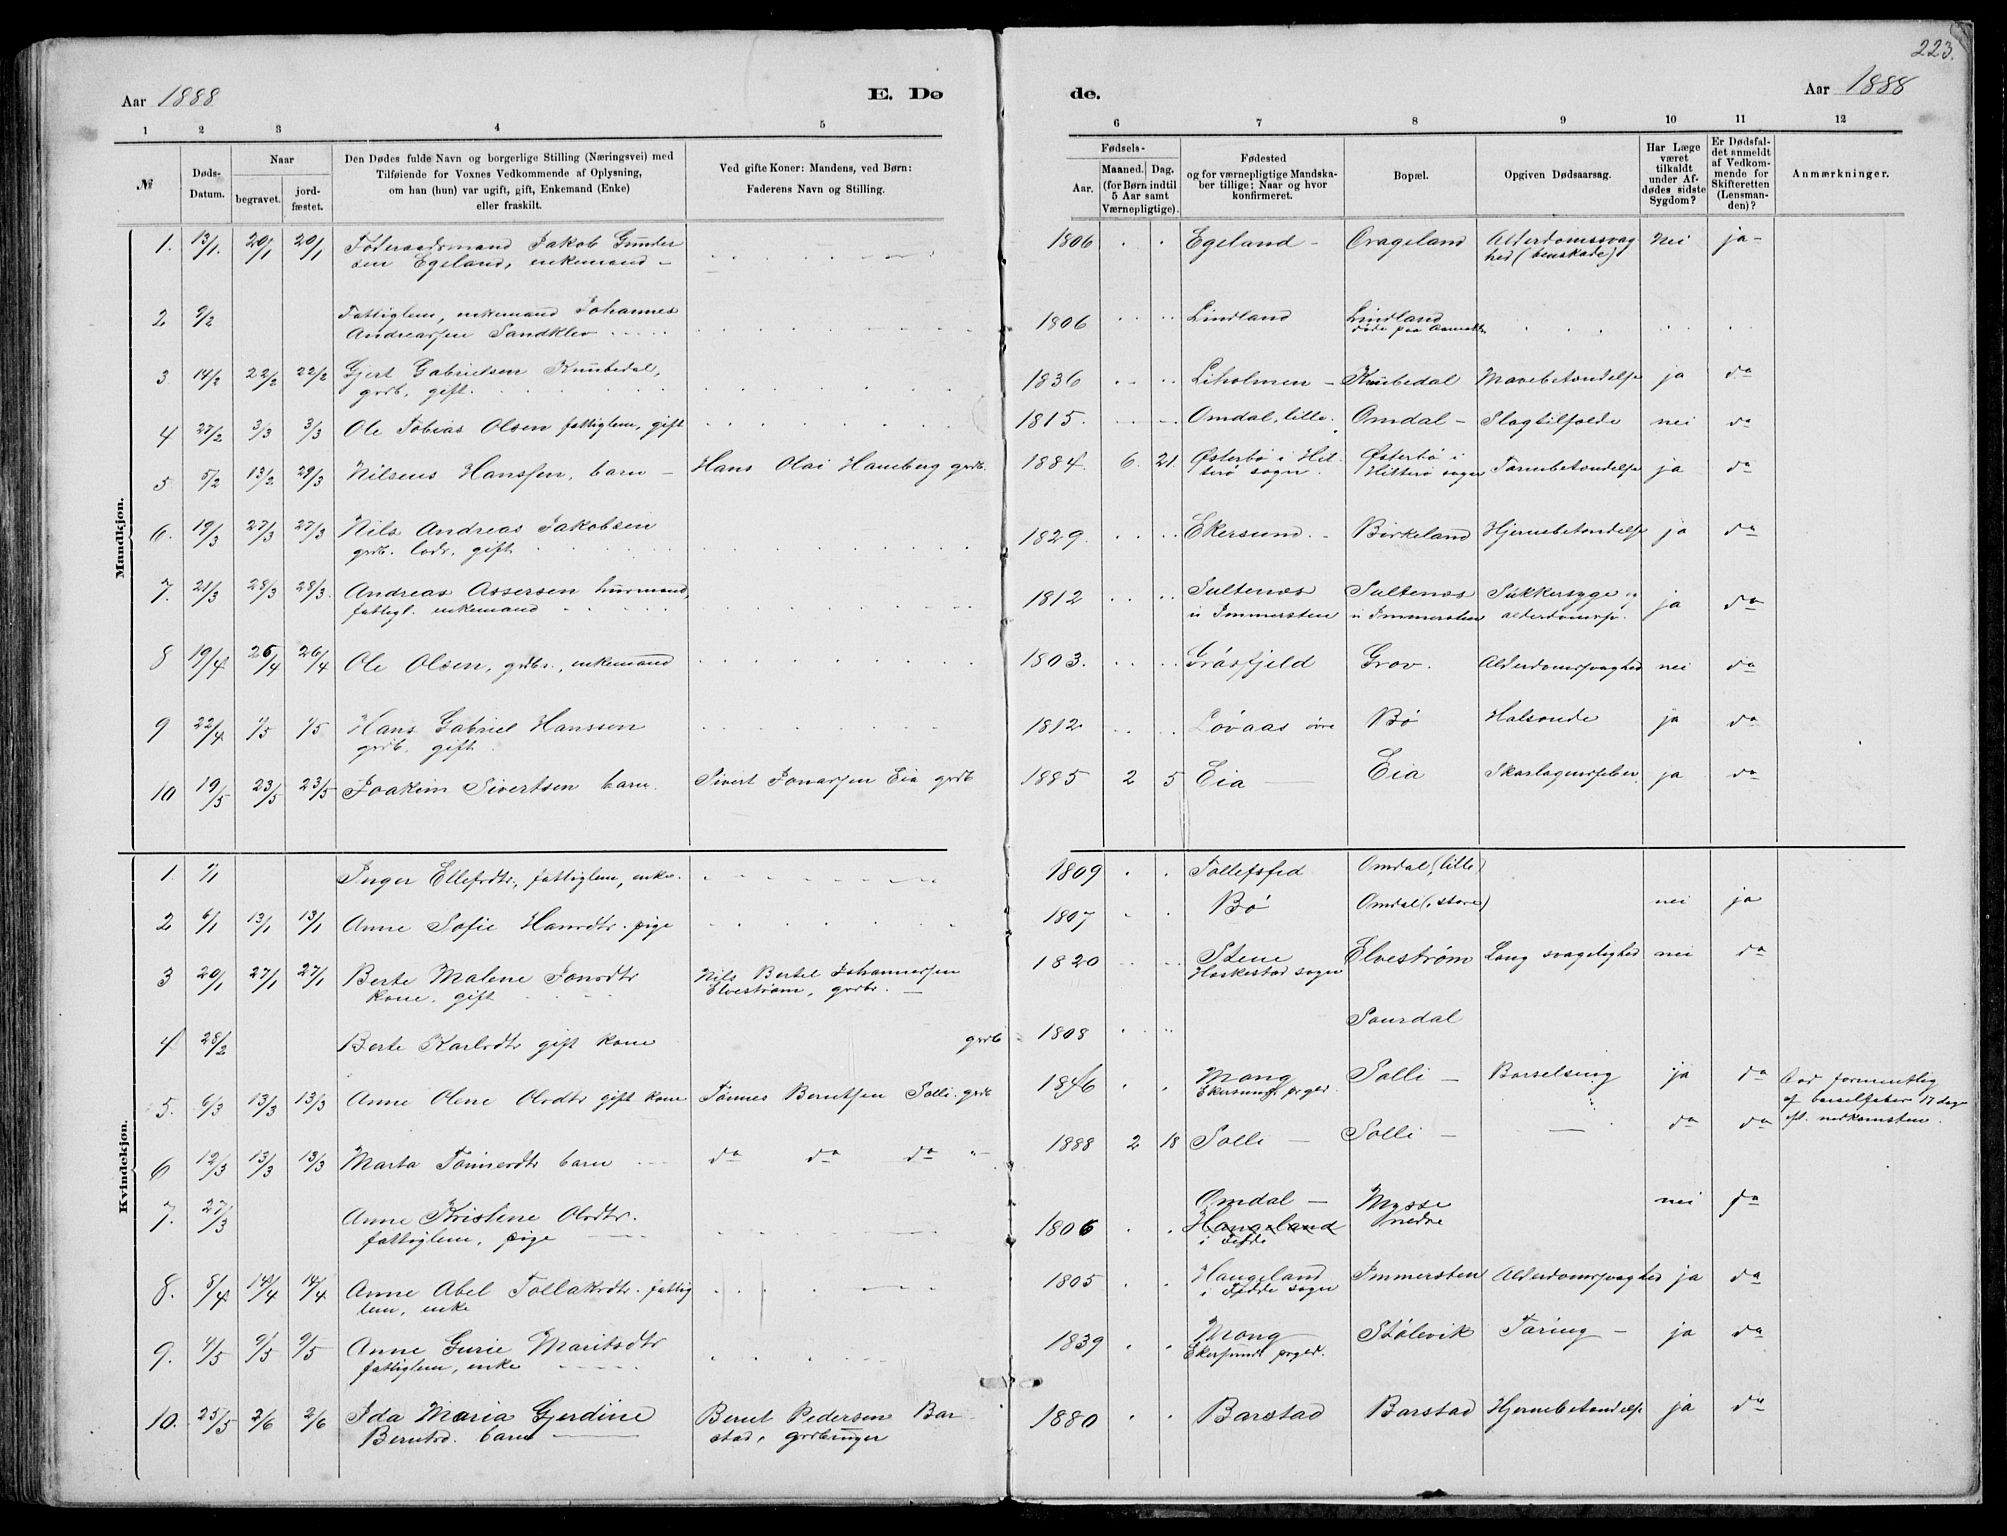 223.
Aar 1888
E. Dø
de.
Aar 1888
1 2 3 4 5
6 7 8 9 10 11 12
№
Døds-
Datum.
Naar
begravet.
jord-
fæstet.
Den Dødes fulde Navn og borgerlige Stilling (Næringsvei) med
Tilføiende for Voxnes Vedkommende af Oplysning,
om han (hun) var ugift, gift, Enkemand (Enke)
eller fraskilt.
Ved gifte Koner: Mandens, ved Børn:
Faderens Navn og Stilling.
Fødsels-
Aar.
Maaned. Dag.
(for Børn indtil
5 Aar samt
Værnepligtige).
Fødested
og for værnepligtige Mandska-
ber tillige: Naar og hvor
konfirmeret.
Bopæl.
Opgiven Dødsaarsag.
Har Læge
været
tilkaldt
under Af-
dødes sidste
Sygdom?
Er Dødsfal-
det anmeldt
af Vedkom-
mende for
Skifteretten
(Lensman-
den)?
Anmærkninger.
Mandkjøn.
1. 13/1. 20/1 20/1 Føderaadsmand Jakob Gunder 1806 Egeland - Orageland Alderdomssvag nei ja -
sen Egeland, enkemand - hed (benskade)
2 9/2 Fattiglem, enkemand Johannes 1806 Lindland Lindland
Andreassen Sandklev døde paa
3 14/2 22/2 22/2 Gjert Gabrielsen Knubedal, 1836 Liholmen - Knubedal Mavebetændelse ja do
grdb, gift.
4 27/2 3/3 3/3 Ole Tobias Olsen fattiglem, gift 1815. Omdal, lille. Omdal - Slagtilfælde nei do
5 5/2 13/2 29/3 Nilsens Hanssen, barn - Hans Olai Haneberg grdb. 1884. 6. 21. Østerbø i Hit- Østerbø i Tarmbetændelse ja do
terø sogn. Hitterø sogn
6. 19/3 27/3 27/3 Nils Andreas Jakobsen 1829. Ekersund. - Birkeland Hjernebetændelse ja do
grdb. lods, gift
7. 21/3 28/3 28/3. Andreas Assersen husmand, 1812 Sultenæs Sultenæs Sukkersyge og ja do
fattigl. enkemand u Immersten u Immersten alderdomssv.
8 19/4 26/4 26/4 Ole Olsen, grdbr., enkemand 1803. Gråsfjeld Grov. Alderdomssvaghed nei do
9 22/4 1/5 1/5 Hans Gabriel Hanssen 1812 Løvaas øvre Bø Halsonde ja do
grdb. gift.
10 19/5 23/5 23/5 Joakim Sivertsen barn. Sivert Jonassen Eia grdb 1885 2 5 Eia Eia Skarlagensfeber ja do
Kvindekjøn.
1. 1/1 Inger Ellefsdtr., fattiglem, enke. 1809 Tollefsfed Omdal, (lille)
2 6/1 13/1 13/1 Anne Sofie Hansdtr. pige 1807 Bø Omdal (, store) nei ja
3 20/1 27/1 27/1 Berte Malene Jonsdtr Nils Bertel Johannessen 1820 Stene Elvestrøm Lang svagelighed nei do
kone, gift Elvestrøm, grdbr. - Heskestad sogn
4 28/2 Berte Karlsdtr gift kone grdb 1808 Saurdal
5. 6/3 13/3 13/3 Anne Olene Olsdtr gift kone Tønnes Berntsen Solli. grdb 1846 Mong Solli - Barselseng ja do Død formentlig
Ekersunds prgjd. af barselfeber 17 dage
eft. nedkomsten.
6 12/3 13/3 13/3 Marta Tønnesdtr barn do do do 1888 2 18 Solli - Solli - do do
7. 27/3 Anne Kristine Olsdtr. 1806 Omdal - Mysse nei ja
fattiglem, pige Haugeland nedre
i Fede
8. 8/4 14/4 14/4 Anne Abel Tollaksdtr. fattig 1805 Haugeland Immersten Alderdomssvaghed ja do
lem, enke i Fedde sogn
9. 4/5 9/5 9/5 Anne Gurie Maritsdtr 1839 Mong Stølevik Tæring - ja do
fattiglem, enke Ekersund prgjd.
10. 25/5 2/6 2/6 Ida Maria Gjerdine Bernt Pedersen Bar 1880 Barstad Barstad Hjernebetændelse ja do
Berntsd. barn stad, grdbruger